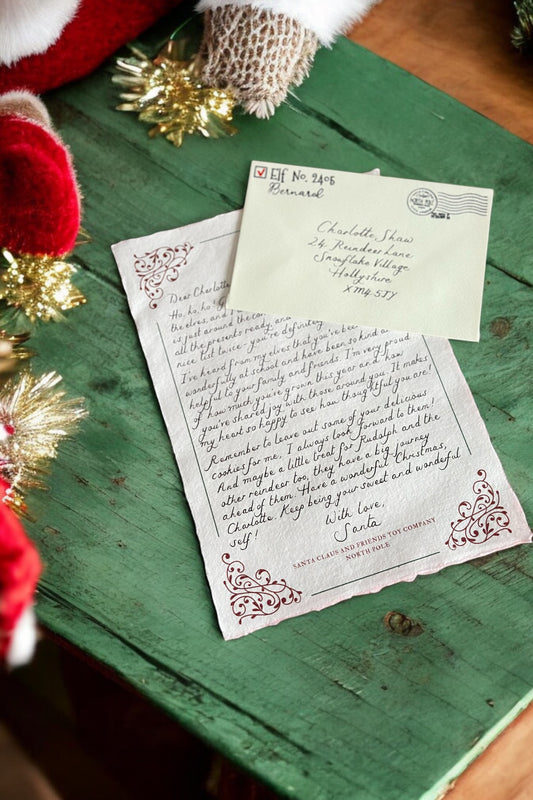 Elf No. 2405
Bernard
NORTH POLE
Charlotte Shaw
24 Reindeer Lane
Snowflake Village
Hollyshire
XM4 5TY
Dear Charlotte
Ho, ho, ho!
the elves, and
is just around the
all the presents ready, and
nice list twice - you're definitely
I've heard from my elves that you've been
wonderfully at school and have been so kind
helpful to your family and friends. I'm very proud
of how much you've grown this year and how
you've shared joy with those around you. It makes
my heart so happy to see how thoughtful you are!
Remember to leave out some of your delicious
cookies for me, I always look forward to them!
And maybe a little treat for Rudolph and the
other reindeer too, they have a big journey
ahead of them. Have a wonderful Christmas,
Charlotte. Keep being your sweet and wonderful
self!
With love,
Santa
SANTA CLAUS AND FRIENDS TOY COMPANY
NORTH POLE